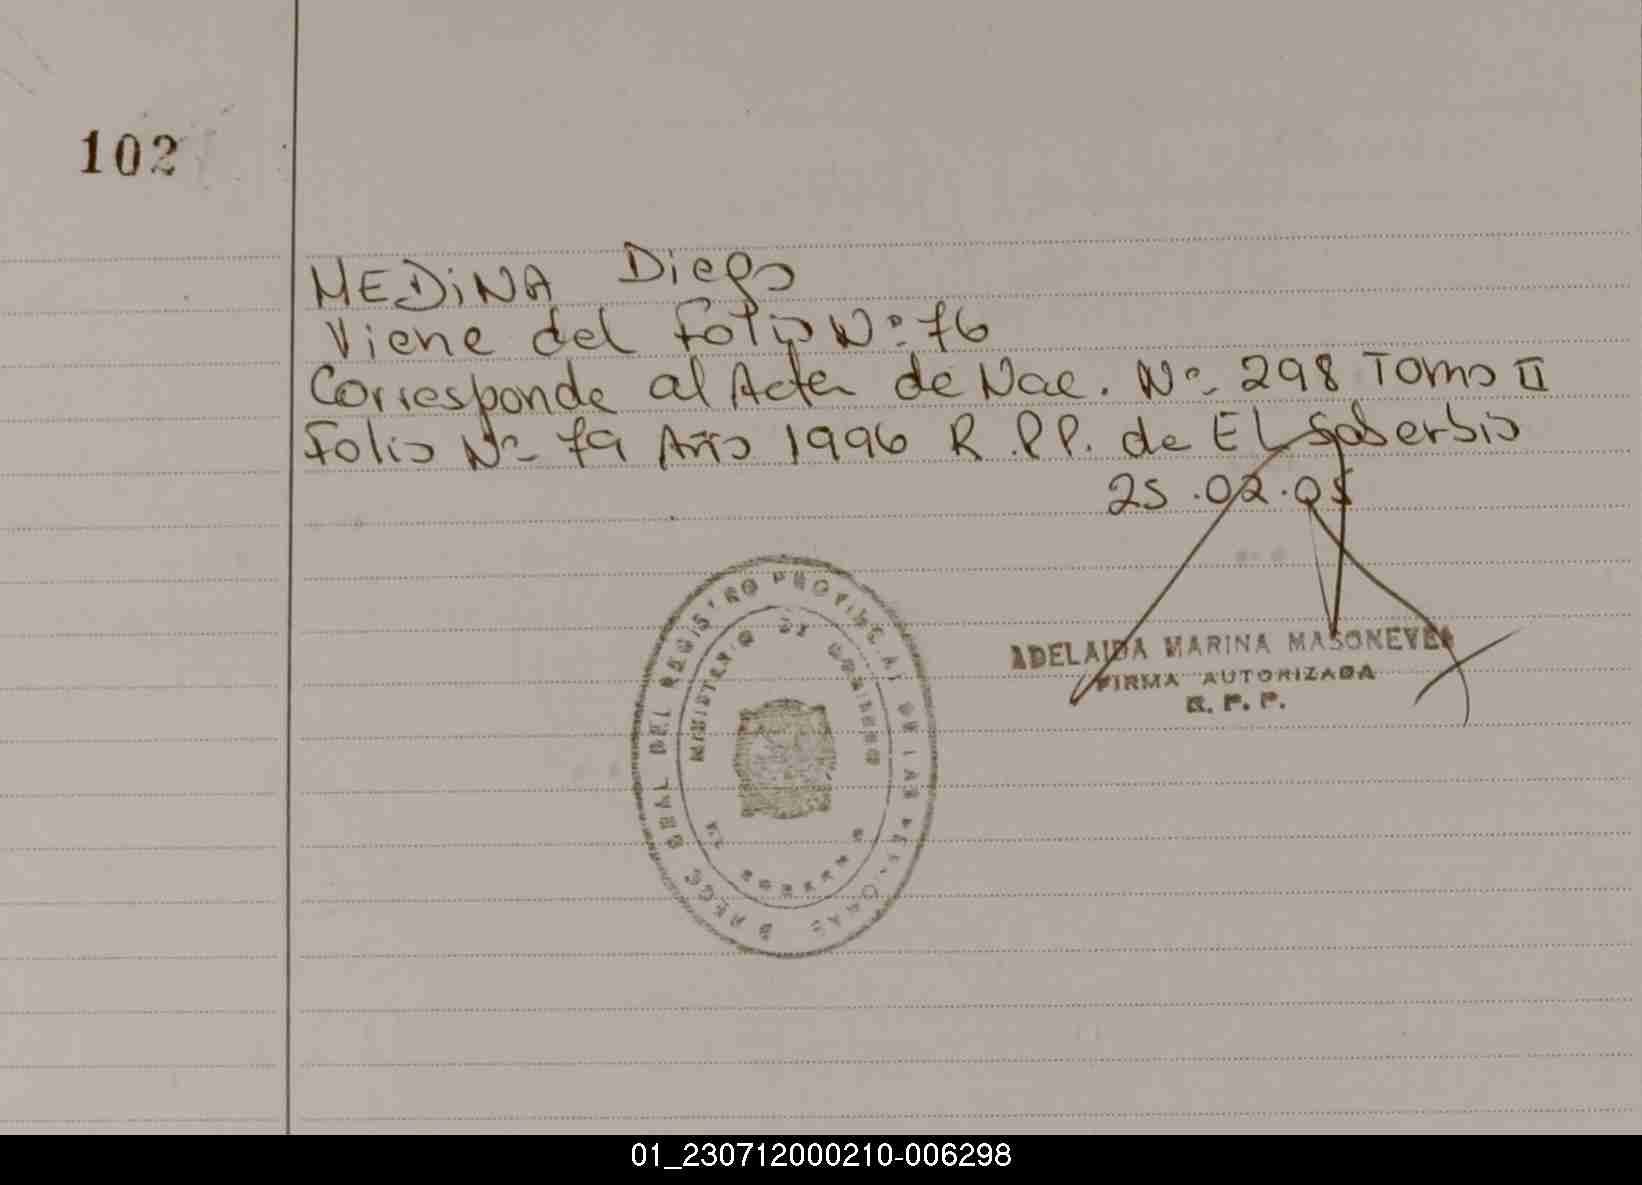 102
MEDINA Diego
Viene del Folio Nº 76
Corresponde al Acta de Nac. Nº 298 Tomo II
Folio Nº 79 Año 1996 R.P.P. de El Soberbio
25.02.05
ADELAIDA MARINA MASONEVEA
FIRMA AUTORIZADA
R. P. P.
DEL REGISTRO PROVINCIAL DE LAS PERSONAS
MINISTERIO DE GOBIERNO
01_230712000210-006298